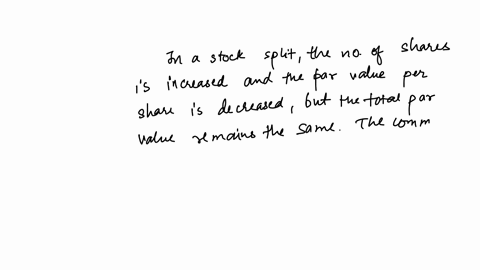 In a stock split, the no. of shares
is increased and the par value per
share is decreased, but the total par
value remains the same. The comm